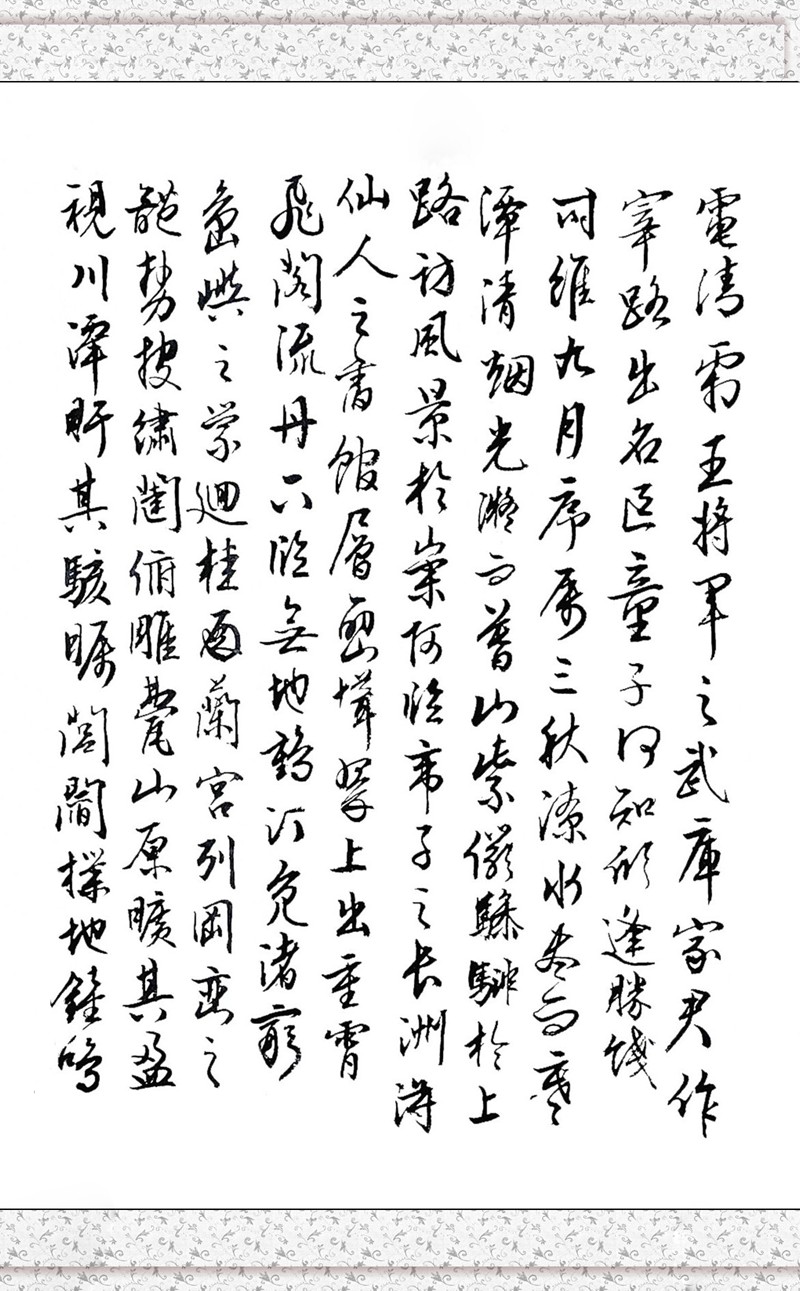 電清霜王將軍之武庫家君作
宰路出名區童子何知躬逢勝餞
時維九月序屬三秋潦水盡而寒
潭清烟光凝而暮山紫儼驂騑於上
路訪風景於崇阿臨帝子之長洲得
仙人之舊館層巒聳翠上出重霄
飛閣流丹下臨無地鶴汀鳧渚窮
島嶼之縈迴桂殿蘭宮列岡巒之
體勢披繡闥俯雕甍山原曠其盈
視川澤盱其駭矚閭閻撲地鐘鳴